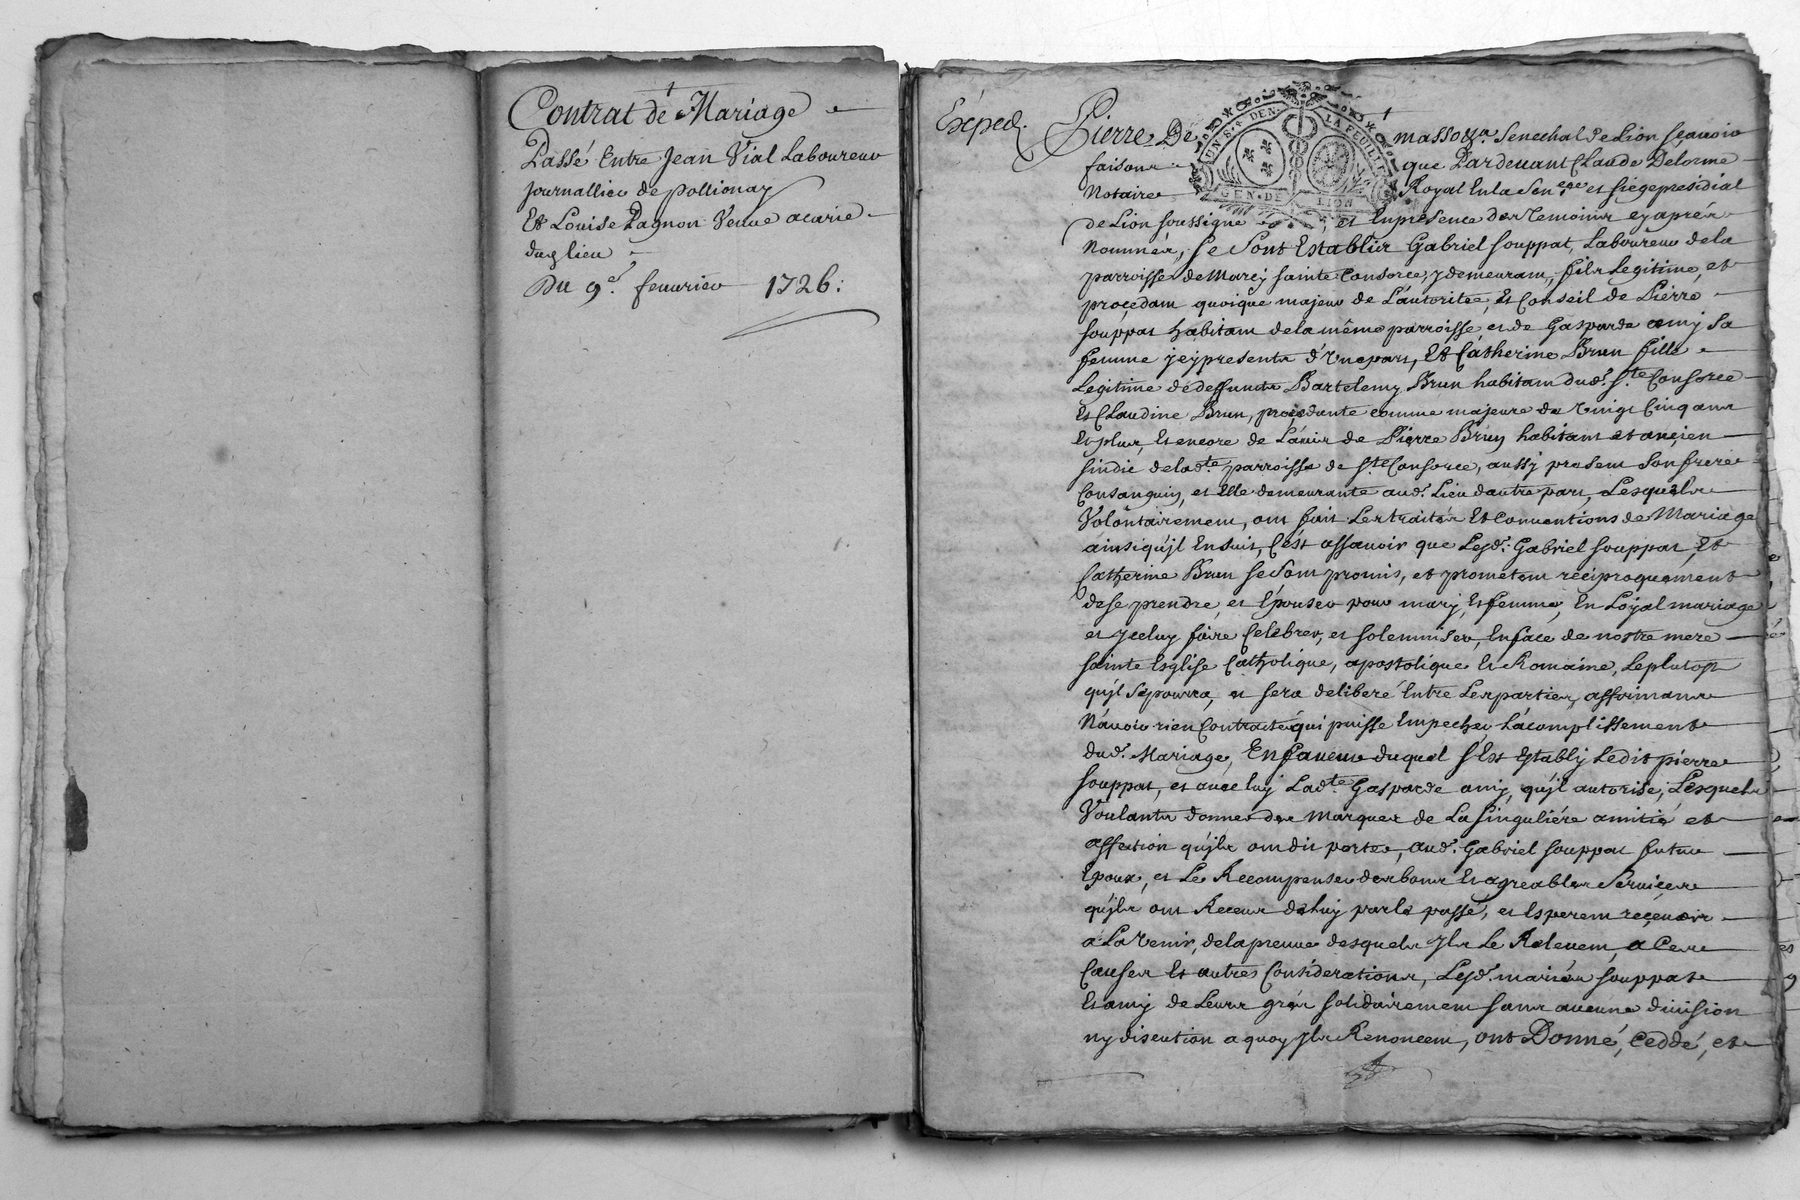 Contrat de Mariage
Passé Entre Jean Vial Laboureur
Journallier de pollionay
Et Louise Pagnon Veuve acarie
dud lieu
Du 9e. feuurier 1726:
Expéd.
UN S. 4 DEN. LA FEUILLE
GEN. DE LION
Pierre De masso &a. Senechal de Lion sçauoir
faisons que Pardeuant Claude Delorme
Notaire Royal En la Senee et siege presidial
de Lion soussigné, et En presence des temoins cy aprés
Nommés, se sont Establis Gabriel souppat, Laboureur de la
parroisse de Marcy sainte Consorce, y demeurant, fils Legitime, et
procedant quoique majeur de L'autoritée, et Conseil de Pierre
souppat habitant de la même parroisse et de Gasparde amy sa
femme jcy presents d'une part, Et Catherine Brun fille
Legitime de deffuncts Bartelemy Brun habitant dud. ste Consorce
Et Claudine Brun, procedante comme majeure de vingt Cinq ans
Et plus, Et encore de L'auis de Pierre Brun habitant et ancien
sindic de lad.te parroisse de ste Consorce, aussy present son frere
Consanguin, et Elle demeurante aud. Lieu dautre part, Lesquels
Volontairement, ont fait Les traités Et Conuentions de Mariage
ainsi qu'jl Ensuit, C'est assauoir que Lesd. Gabriel souppat, Et
Catherine Brun se sont promis, et prometent reciproquement
de se prendre et Epouser pour mary, Et femme, En Loyal mariage
et Jceluy faire Celebrer, et solemniser, En face de nostre mere
sainte Esglise Catholique, apostolique Et Romaine, Le plutost
qu'jl se pourra, et sera deliberé Entre Les parties, affirmans
N'auoir rien Contracté qui puisse Empecher L'acomplissement
dud. Mariage, En faueur duquel s'Est Establÿ Ledit pierre
souppat, et auec luy Lad.te Gasparde amy, qu'jl autorise, Lesquels
Voulants donner des marques de La singuliére amitié et
affection qu'jls ont dit porter, aud. Gabriel souppat futur
Epoux, et Le Recompenser des bons Et agreables Seruices
qu'jls ont Receus de luy par le passé, et Esperent reçeuoir
a L'avenir, de la preuue desquels Jls Le Releuent, a Ces
Causes Et autres Considerations, Lesd. mariés souppat
Et amy de Leurs grés solidairement sans aucune diuision
ny discution a quoy Jls Renoncent, ont Donné, Ceddé, et